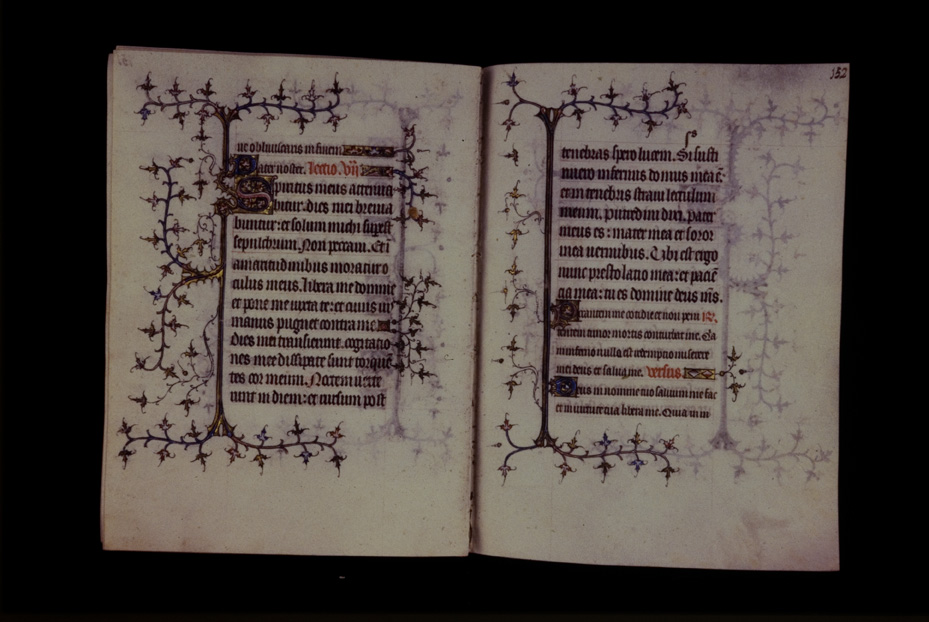 ne obliviscaris in finem
Pater noster. Lectio. vii
Spiritus meus attenua
bitur: dies mei brevia
buntur: et solum michi supest
sepulchrum. Non peccavi. Et i
amaritudinibus moratur o
culus meus. libera me domine
et pone me iuxta te: et cuius vis
manus pugnet contra me
Dies mei transierunt. cogitatio
nes mee dissipate sunt torquē
tes cor meum. Noctem verte
runt in diem: et rursum post
152
tenebras spero lucem. Si susti
nuero infernus domus mea ē
et in tenebris stravi lectulum
meum. putredini dixi. pater
meus es: mater mea et soror
mea vermibus. Ubi est ergo
nunc prestolatio mea: et paciē
cia mea: tu es domine deus m̄s.
Peccantem me cotidie et non peni
tentem timor mortis conturbat me. Q̄a
in inferno nulla est redemptio miserere
mei deus et salva me. versus
Deus in nomine tuo salvum me fac
et in virtute tua libera me. Quia in in